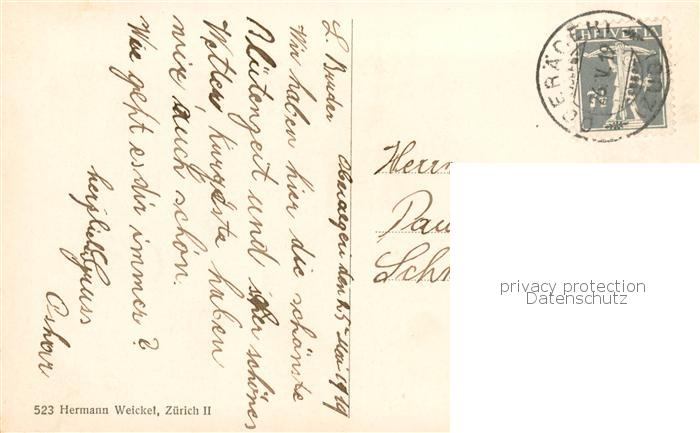 Oberaegeri den 15. Mai 1919
L. Bruder
Wir haben hier die schönste
Blütenzeit und sehr schönes
Wetter. Kurgäste haben
wir auch schon.
Wie geht es dir immer?
herzlich Gruss
Oskar
Herrn
Pau
Sch
HELVETIA
OBERÄGERI
(ZUG)
523 Hermann Weickel, Zürich II
privacy protection
Datenschutz